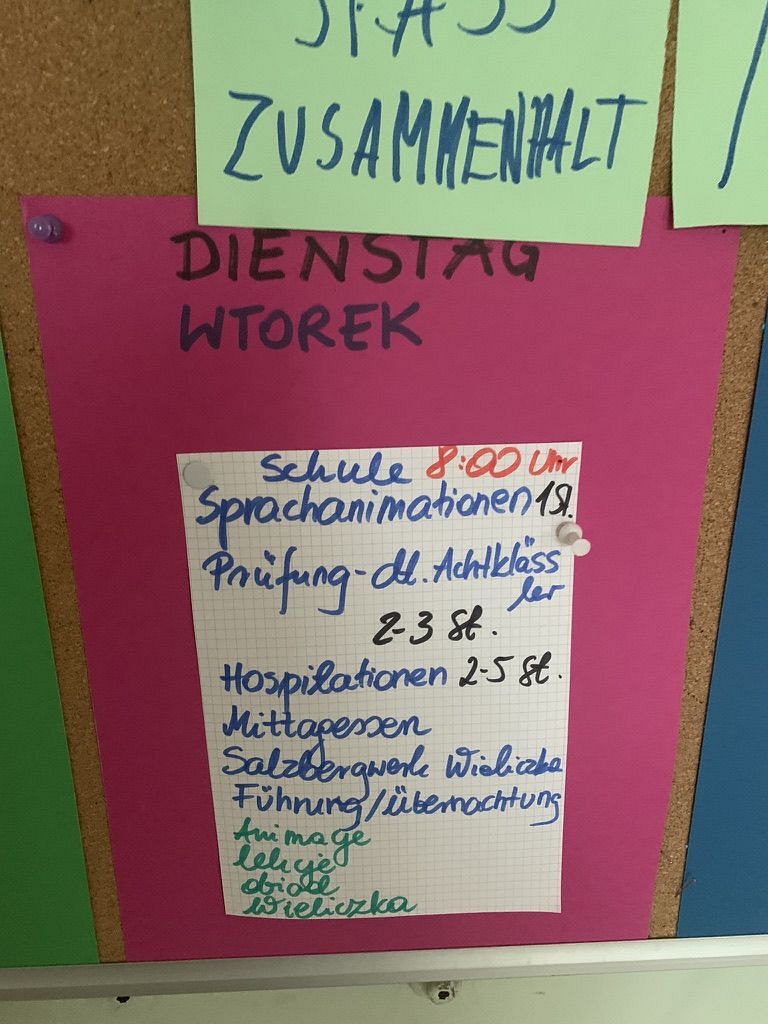 SPASS
ZUSAMMENHALT
DIENSTAG
WTOREK
Schule 8:00 Uhr
Sprachanimationen 1 St.
Prüfung-dt. Achtkläss
ler
2-3 St.
Hospitationen 2-5 St.
Mittagessen
Salzbergwerk Wieliczka
Führung/Übernachtung
Animage
lekcje
obiad
Wieliczka